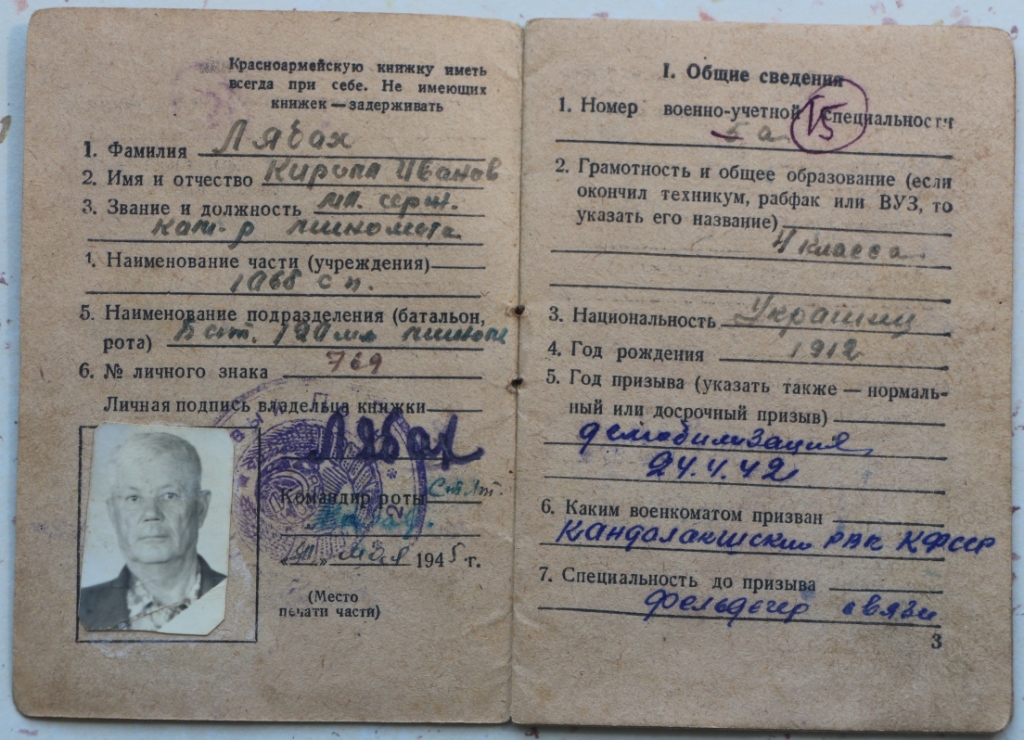 Красноармейскую книжку иметь
всегда при себе. Не имеющих
книжек — задерживать
1. Фамилия Лябах
2. Имя и отчество Кирилл Иванов
3. Звание и должность мл. серж.
ком-р миномета
1. Наименование части (учреждения)
1068 сп.
5. Наименование подразделения (батальон,
рота) Бат. 120 мм
6. № личного знака 769
Личная подпись владельца книжки
Лябах
Командир роты Ст. Лт.
мая 1945 г.
(Место
печати части)
I. Общие сведения
1. Номер военно-учетной специальности
5 а 15
2. Грамотность и общее образование (если
окончил техникум, рабфак или ВУЗ, то
указать его название)
4 класса
3. Национальность Украинец
4. Год рождения 1912
5. Год призыва (указать также — нормаль-
ный или досрочный призыв)
демобилизация
24.4.42
6. Каким военкоматом призван
Кандолакшский РВК КФССР
7. Специальность до призыва
фельдегер связи
3